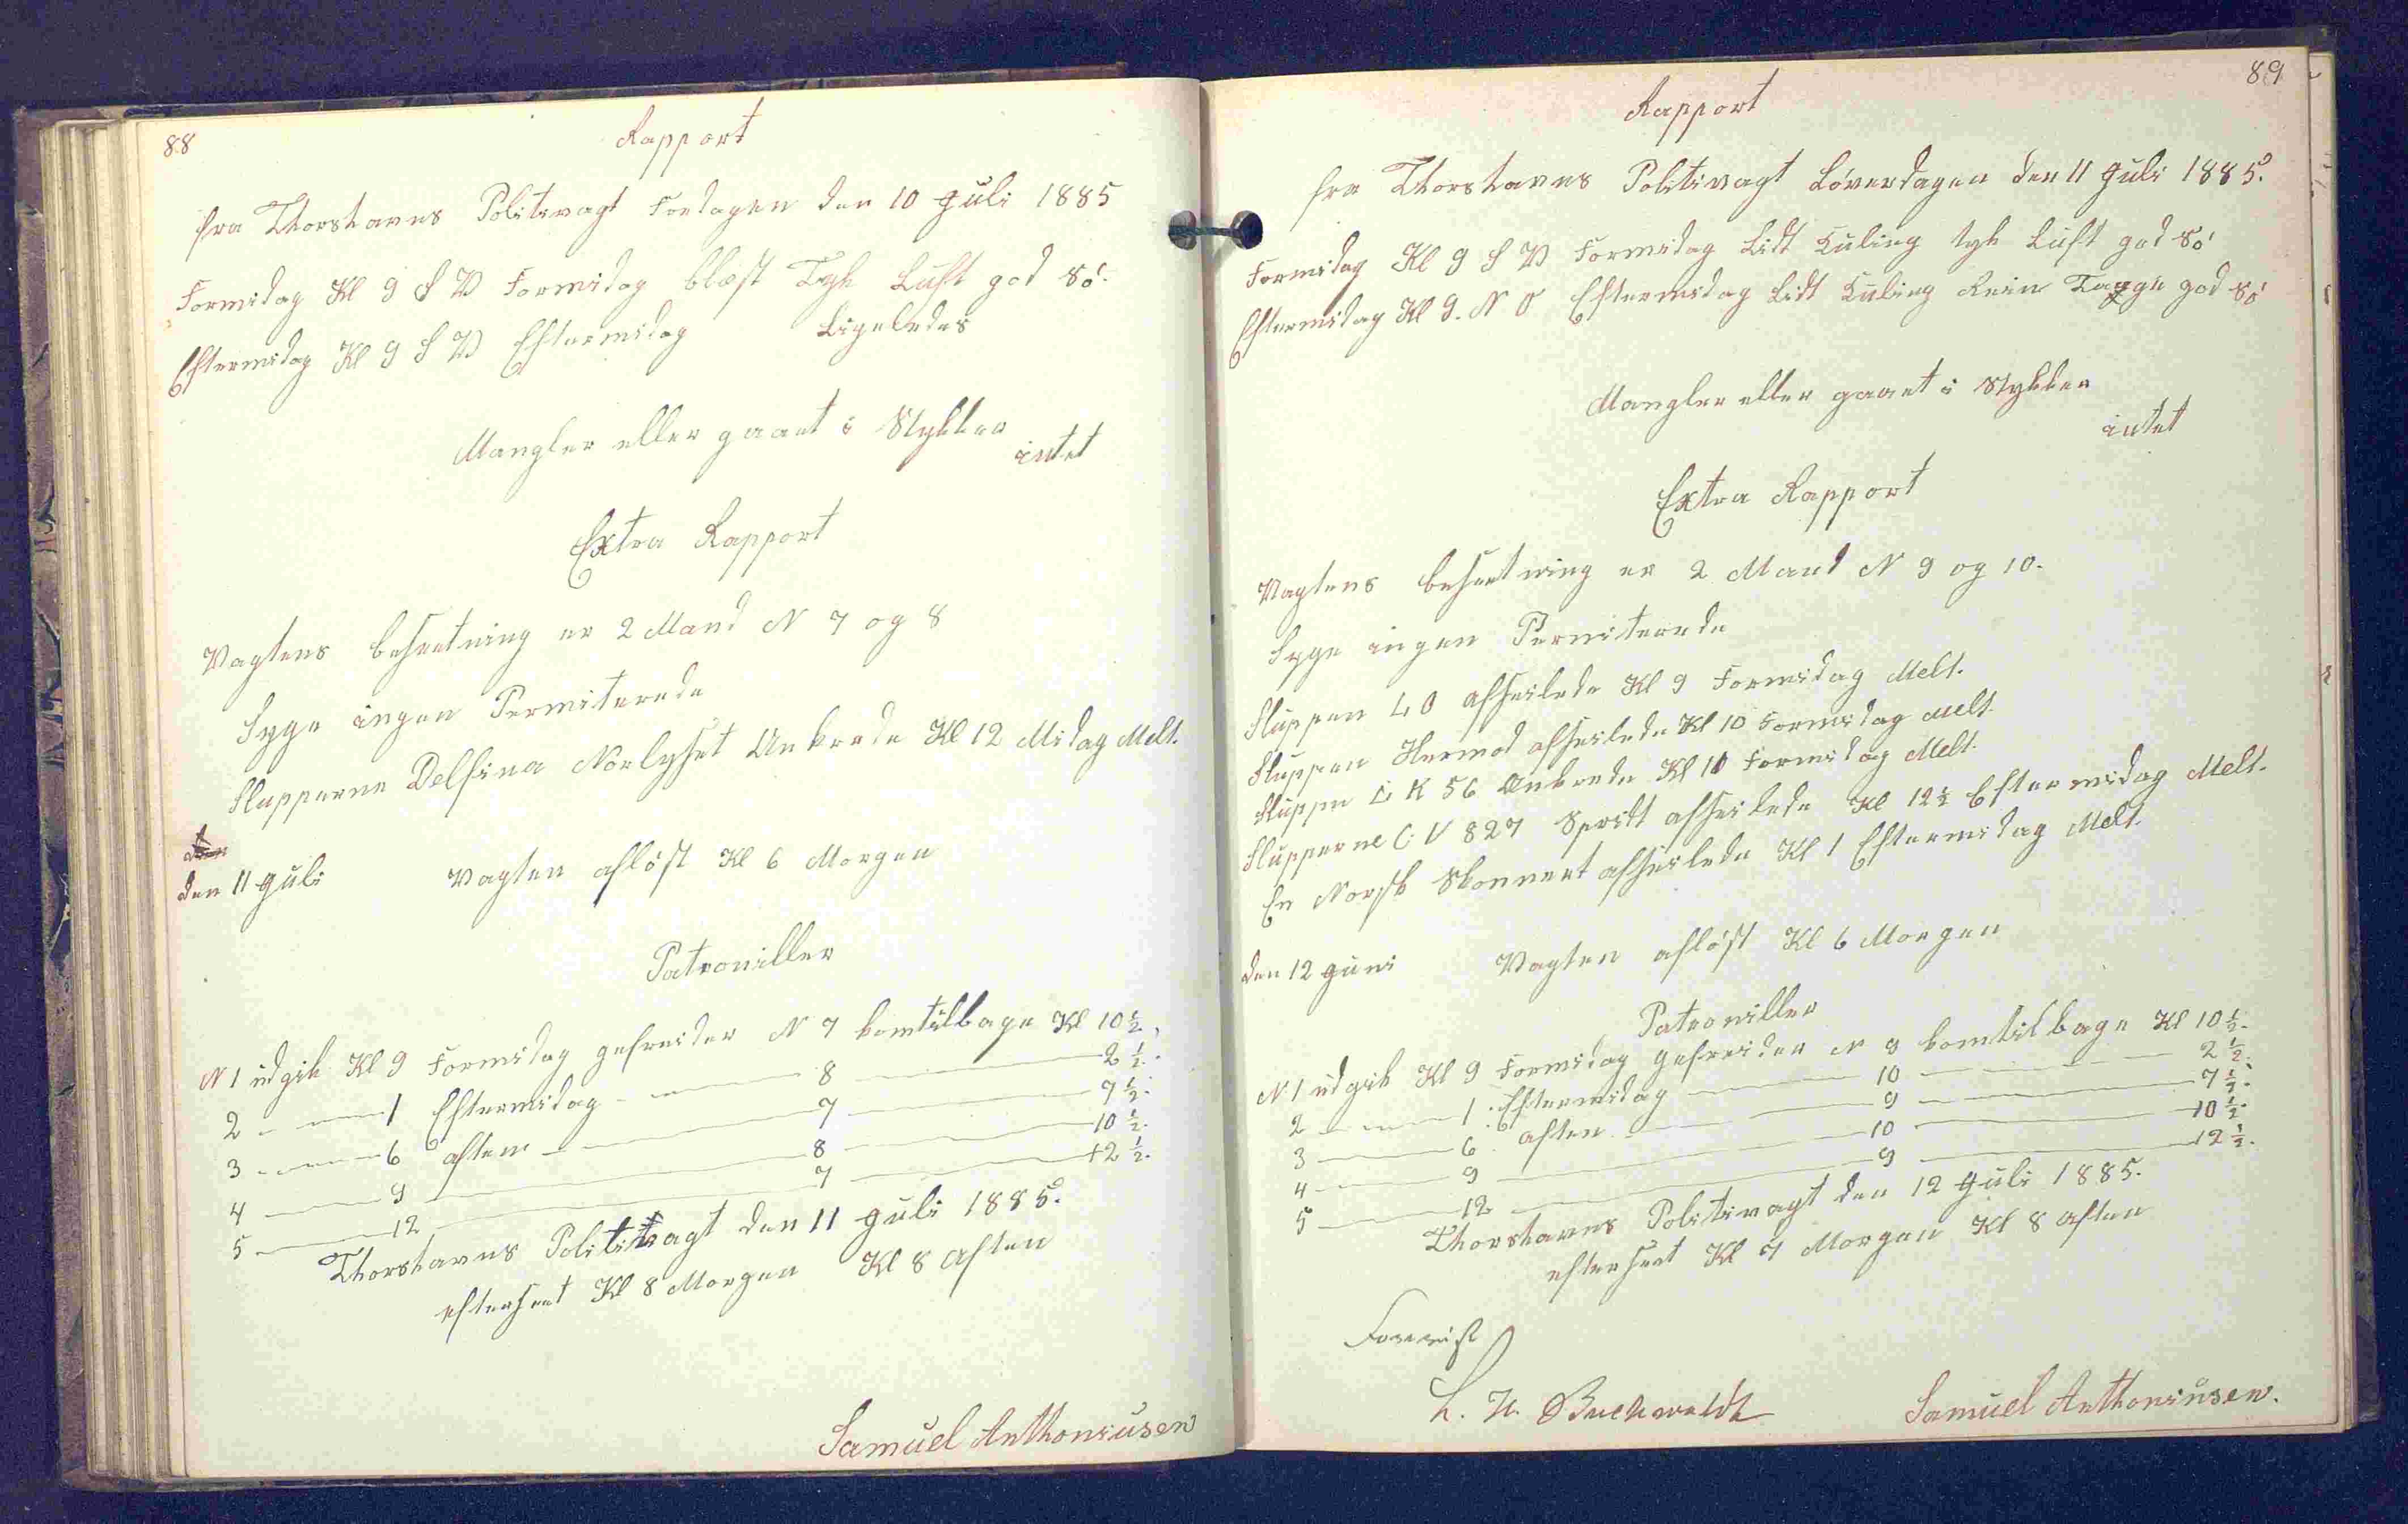 88
Rapport
fra Thorshavns Politivagt Fredagen den 10 Juli 1885
Formidag Kl 9 S V Formidag blæst Tyk Luft god Sø.
Eftermidag Kl 9 S V Eftermidag Ligeledes
Mangler eller gaaet i Stykker
intet
Extra Rapport
Vagtens besætning er 2 Mand N 7 og 8
Syge ingen Permiterede
Slupperne Delfina Norlyset Ankrede Kl 12 Midag Melt.
den 11 Juli Vagten afløst Kl 6 Morgen
Patrouiller
N 1 udgik Kl 9 Formidag gefreider N 7 komtilbage Kl 10 ½.
2 — 1 Eftermidag — 8 — 2 ½.
3 — 6 aften — 7 — 7 ½.
4 — 9 — 8 — 10 ½.
5 — 12 — 7 — 12 ½.
Thorshavns Politivagt den 11 Juli 1885.
efterseet Kl 8 Morgen Kl 8 Aften
Samuel Anthoniusen
89
Rapport
fra Thorshavns Politivagt Løverdagen den 11 Juli 1885.
Formidag Kl 9 S V Formidag Lidt Kuling tyk Luft god Sø
Eftermidag Kl 9. N O Eftermidag Lidt Kuling Rein Taage god Sø
Mangler eller gaaet i Stykker
intet
Extra Rapport
Vagtens besætning er 2 Mand N 9 og 10.
Syge ingen Permiterede
Sluppen LO afseilede Kl 9 Formidag Melt.
Sluppen Hermod afseilede Kl 10 Formidag Melt.
Sluppn L K 56 Ankrede Kl 10 Formidag Melt.
Slupperne C V 827 Spridt afseilede Kl 12½ Eftermidag Melt.
En Norsk Skonnert afseilede Kl 1 Eftermidag Melt.
den 12 Juni Vagten afløst Kl 6 Morgen
Patrouiller
N 1 udgik Kl 9 Formidag Gefreider N 9 komtilbage Kl 10 ½.
2 — 1 Eftermidag — 10 — 2 ½.
3 — 6 aften — 9 — 7 ½.
4 — 9 — 10 — 10 ½.
5 — 12 — 9 — 12 ½.
Thorshavns Politivagt den 12 Juli 1885.
efterseet Kl 7 Morgen Kl 8 Aften
Forevist
H. Buchwaldt
Samuel Anthoniusen.